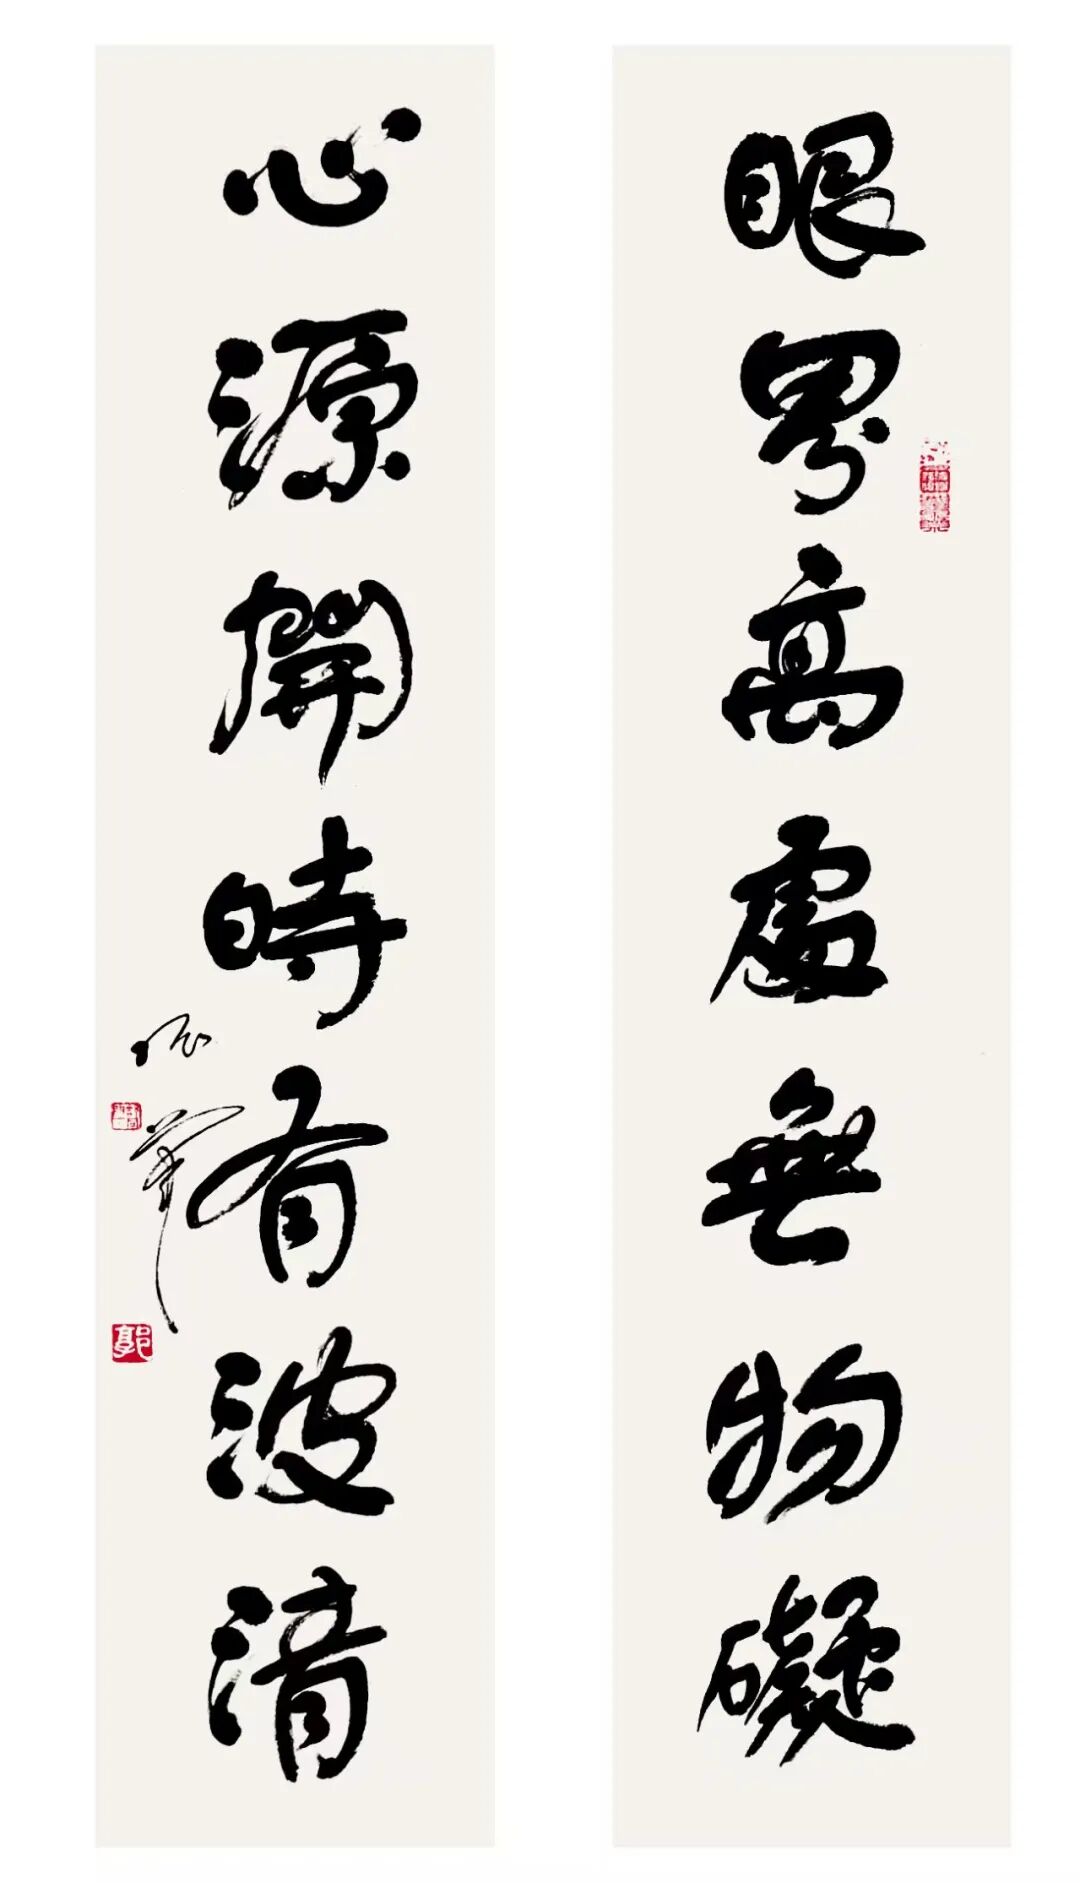 眼界高處無物礙
心源開時有波清
郭